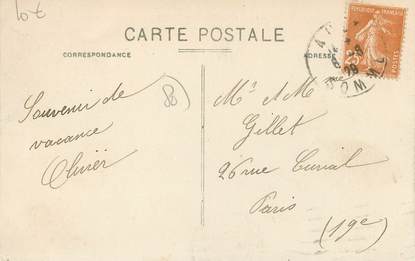 10€
CARTE POSTALE
CORRESPONDANCE
ADRESSE
REPUBLIQUE FRANÇAISE
POSTES
SOMME
Souvenir de
vacance
Olivier
80
Mr & M
Gillet
26 rue Curial
Paris
(19e)